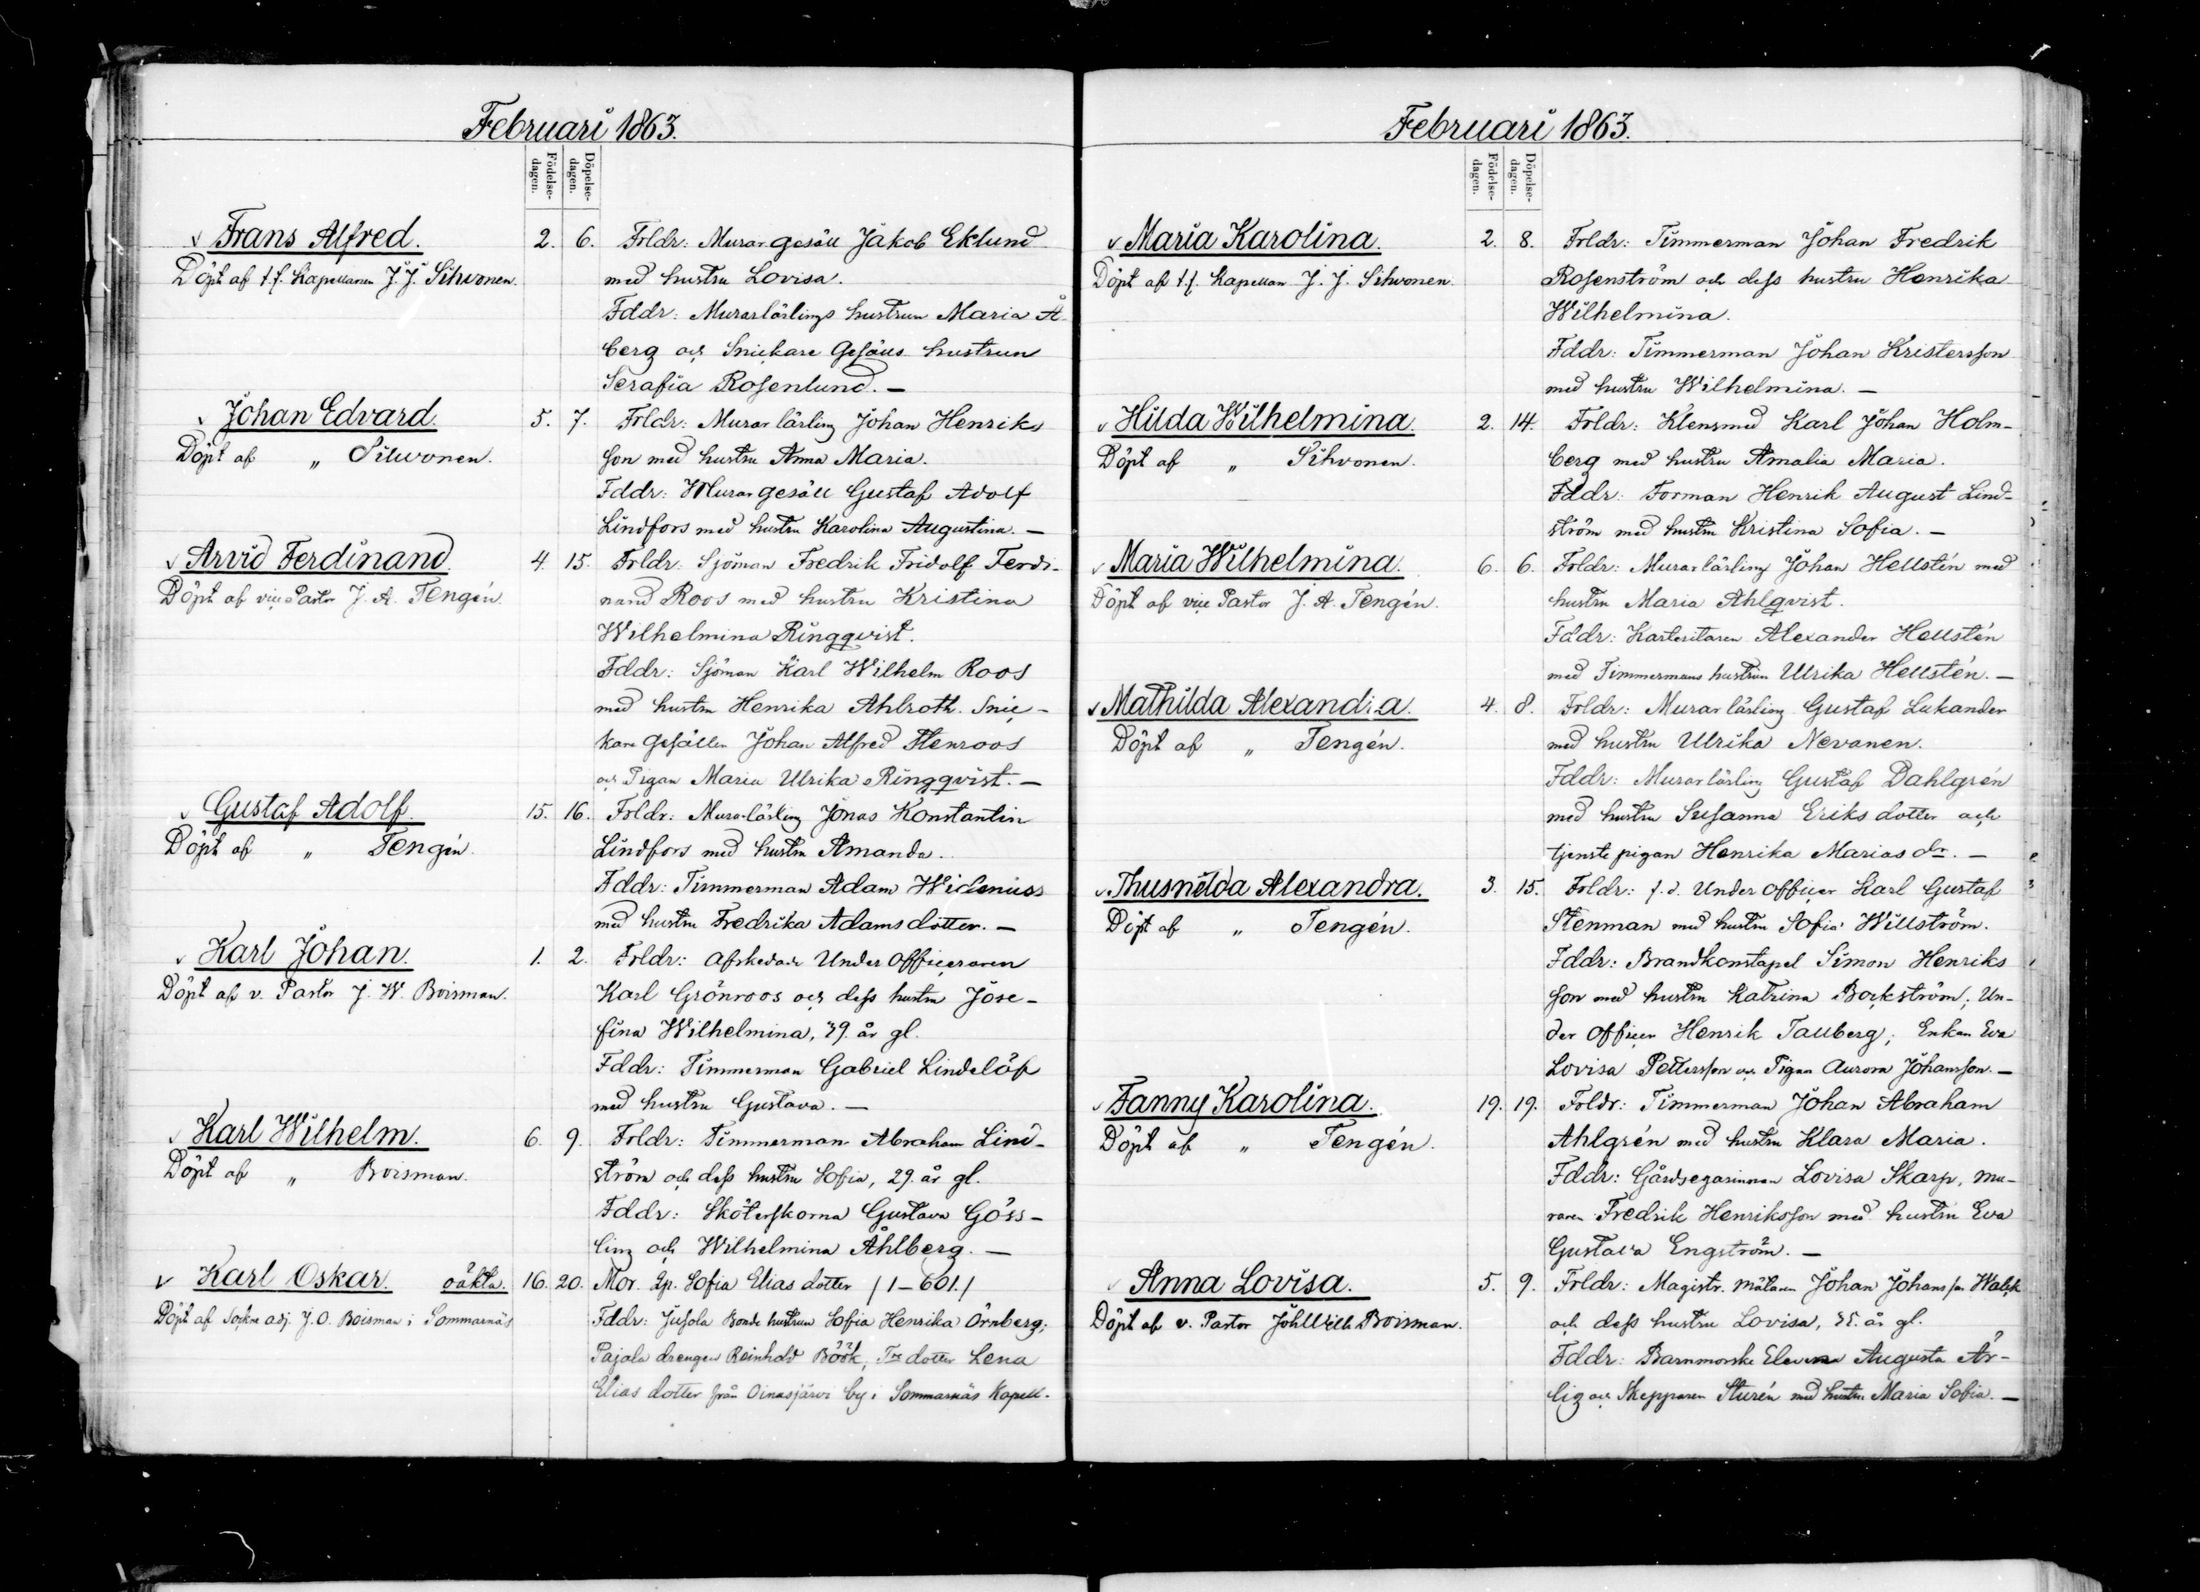 Februari 1863.
Födelse-
dagen.
Döpelse-
dagen.
v Frans Alfred. 2. 6. Frldr: Murar gesäll Jakob Eklund
Döpt af t.f. Kapellanen J. J. Sihvonen. med hustru Lovisa.
Fddr: Murarlärlings hustrun Maria Å-
berg och Snickare Gesälls hustrun
Serafia Rosenlund. —
v Johan Edvard. 5. 7. Frldr: Murar lärling Johan Henriks
Döpt af „ Sihvonen. son med hustru Anna Maria.
Fddr: Murar gesäll Gustaf Adolf
Lindfors med hustru Karolina Augustina. —
v Arvid Ferdinand. 4. 15. Frldr: Sjöman Fredrik Fridolf Ferdi-
Döpt af vice Pastor J. A. Tengén. nand Roos med hustru Kristina
Wilhelmina Ringqvist.
Fddr: Sjöman Karl Wilhelm Roos
med hustru Henrika Ahlroth. Snic-
kare Gesällen Johan Alfred Stenroos
och Pigan Maria Ulrika Ringqvist. —
v Gustaf Adolf. 15. 16. Frldr: Murarlärling Jonas Konstantin
Döpt af „ Tengén. Lindfors med hustru Amanda.
Fddr: Timmerman Adam Widenius
med hustru Fredrika Adams dotter. —
v Karl Johan. 1. 2. Frldr: Afskedade Under Officeraren
Döpt af v. Pastor J. W. Boisman. Karl Grönroos och dess hustru Jose-
fina Wilhelmina, 39. år gl.
Fddr: Timmerman Gabriel Lindelöf
med hustru Gustava. —
v Karl Wilhelm. 6. 9. Frldr: Timmerman Abraham Lind-
Döpt af „ Boisman. ström och dess hustru Sofia, 29. år gl.
Fddr: Sköterskorna Gustava Göss-
ling och Wilhelmina Åhlberg. —
v Karl Oskar. oäkta. 16. 20. Mor. Ip. Sofia Elias dotter /1—601./
Döpt af Sockne adj. J. O. Boisman i Sommarnäs Fddr: Jusola Bonde hustrun Sofia Henrika Örnberg;
Pajala drengen Reinhold Böök, Trs dotter Lena
Elias dotter från Oinasjärvi by i Sommarnäs Kapell.
Februari 1863.
Födelse-
dagen.
Döpelse-
dagen.
v Maria Karolina. 2. 8. Frldr: Timmerman Johan Fredrik
Döpt af t.f. Kapellan J. J. Sihvonen. Rosenström och dess hustru Henrika
Wilhelmina.
Fddr: Timmerman Johan Kristersson
med hustru Wilhelmina. —
v Hilda Wilhelmina. 2. 14. Frldr: Klensmed Karl Johan Holm-
Döpt af „ Sihvonen. berg med hustru Amalia Maria.
Fddr: Forman Henrik August Lind-
ström med hustru Kristina Sofia. —
v Maria Wilhelmina. 6. 6. Frldr: Murarlärling Johan Hellstén med
Döpt af vice Pastor J. A. Tengén. hustru Maria Ahlqvist.
Fddr: Alexander Hellstén
med Timmermans hustrun Ulrika Hellstén. —
v Mathilda Alexandra. 4. 8. Frldr: Murar lärling Gustaf Lukander
Döpt af „ Tengén. med hustru Ulrika Nevanen.
Fddr: Murar lärling Gustaf Dahlgrén
med hustru Susanna Eriks dotter och
tjenste pigan Henrika Marias dr. —
v Thusnelda Alexandra. 3. 15. Frldr: f.d. Under officer Karl Gustaf
Döpt af „ Tengén. Stenman med hustru Sofia Willström.
Fddr: Brandkonstapel Simon Henriks
son med hustru Katrina Bockström; Un-
der officer Henrik Tauberg; Enkan Eva
Lovisa Pettersson och Pigan Aurora Johansson. —
v Fanny Karolina. 19. 19. Frldr: Timmerman Johan Abraham
Döpt af „ Tengén. Ahlgrén med hustru Klara Maria.
Fddr: Gårdsegarinnan Lovisa Skarp, mu-
raren Fredrik Henriksson med hustru Eva
Gustava Engström. —
v Anna Lovisa. 5. 9. Frldr: Magistr. Mätaren Johan Johansson
Döpt af v. Pastor Joh Wilh Boisman. och dess hustru Lovisa, 35. år gl.
Fddr: Barnmorske Eleven Augusta Är-
lig och Skepparen Sturén med hustru Maria Sofia. —